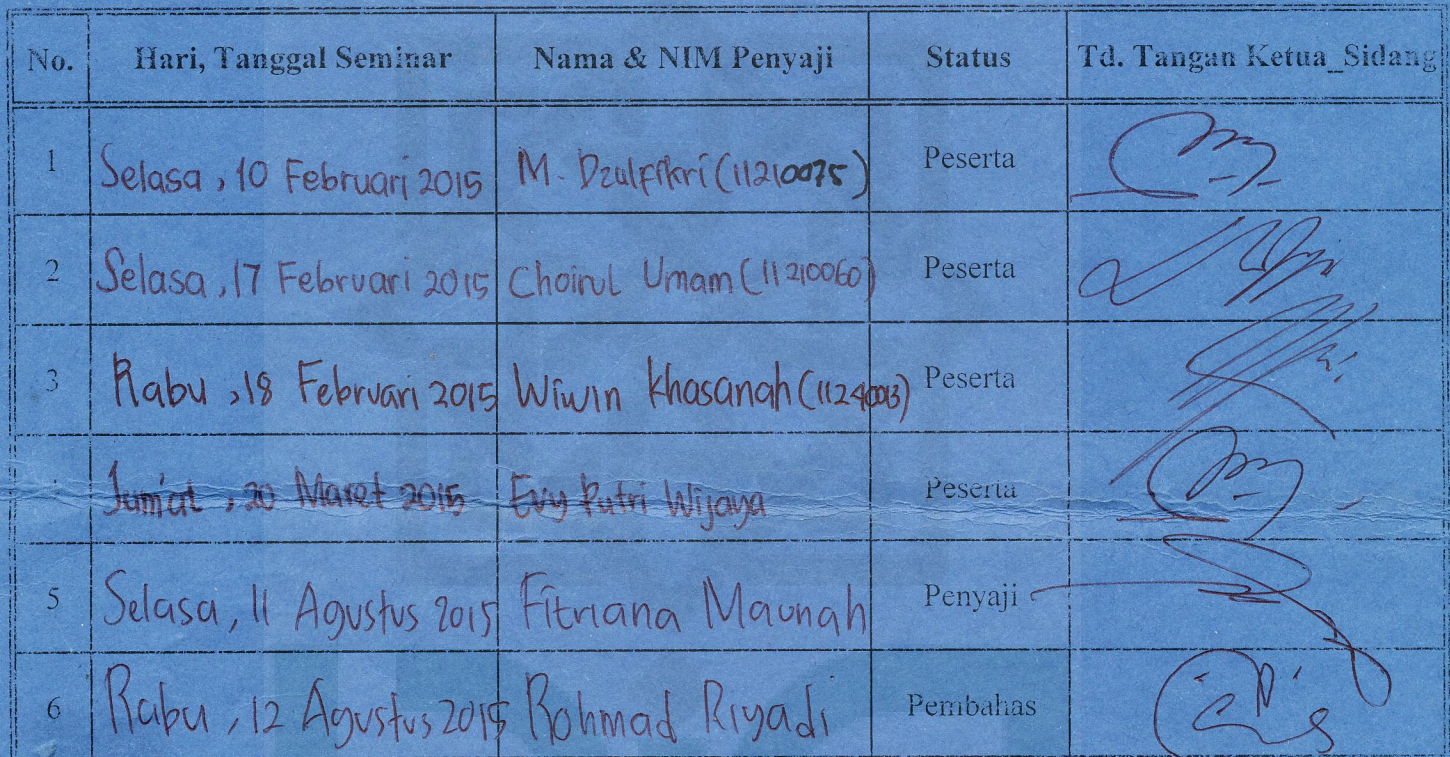 No. Hari, Tanggal Seminar Nama & NIM Penyaji Status Td. Tangan Ketua_Sidang
1 Selasa, 10 Februari 2015 M. Dzulfikri (11210075) Peserta
2 Selasa, 17 Februari 2015 Choirul Umam (11210060) Peserta
3 Rabu, 18 Februari 2015 Wiwin Khasanah (11240013) Peserta
Jum'at, 20 Maret 2015 Evy Putri Wijaya Peserta
5 Selasa, 11 Agustus 2015 Fitriana Maunah Penyaji
6 Rabu, 12 Agustus 2015 Rohmad Riyadi Pembahas